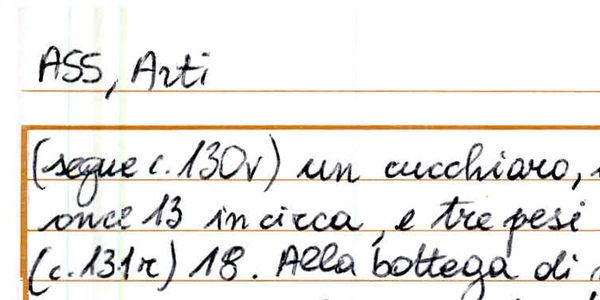 ASS, Arti
(segue c. 130v) un cucchiaro,
once 13 in circa, e tre pesi
(c. 131r) 18. Alla bottega di